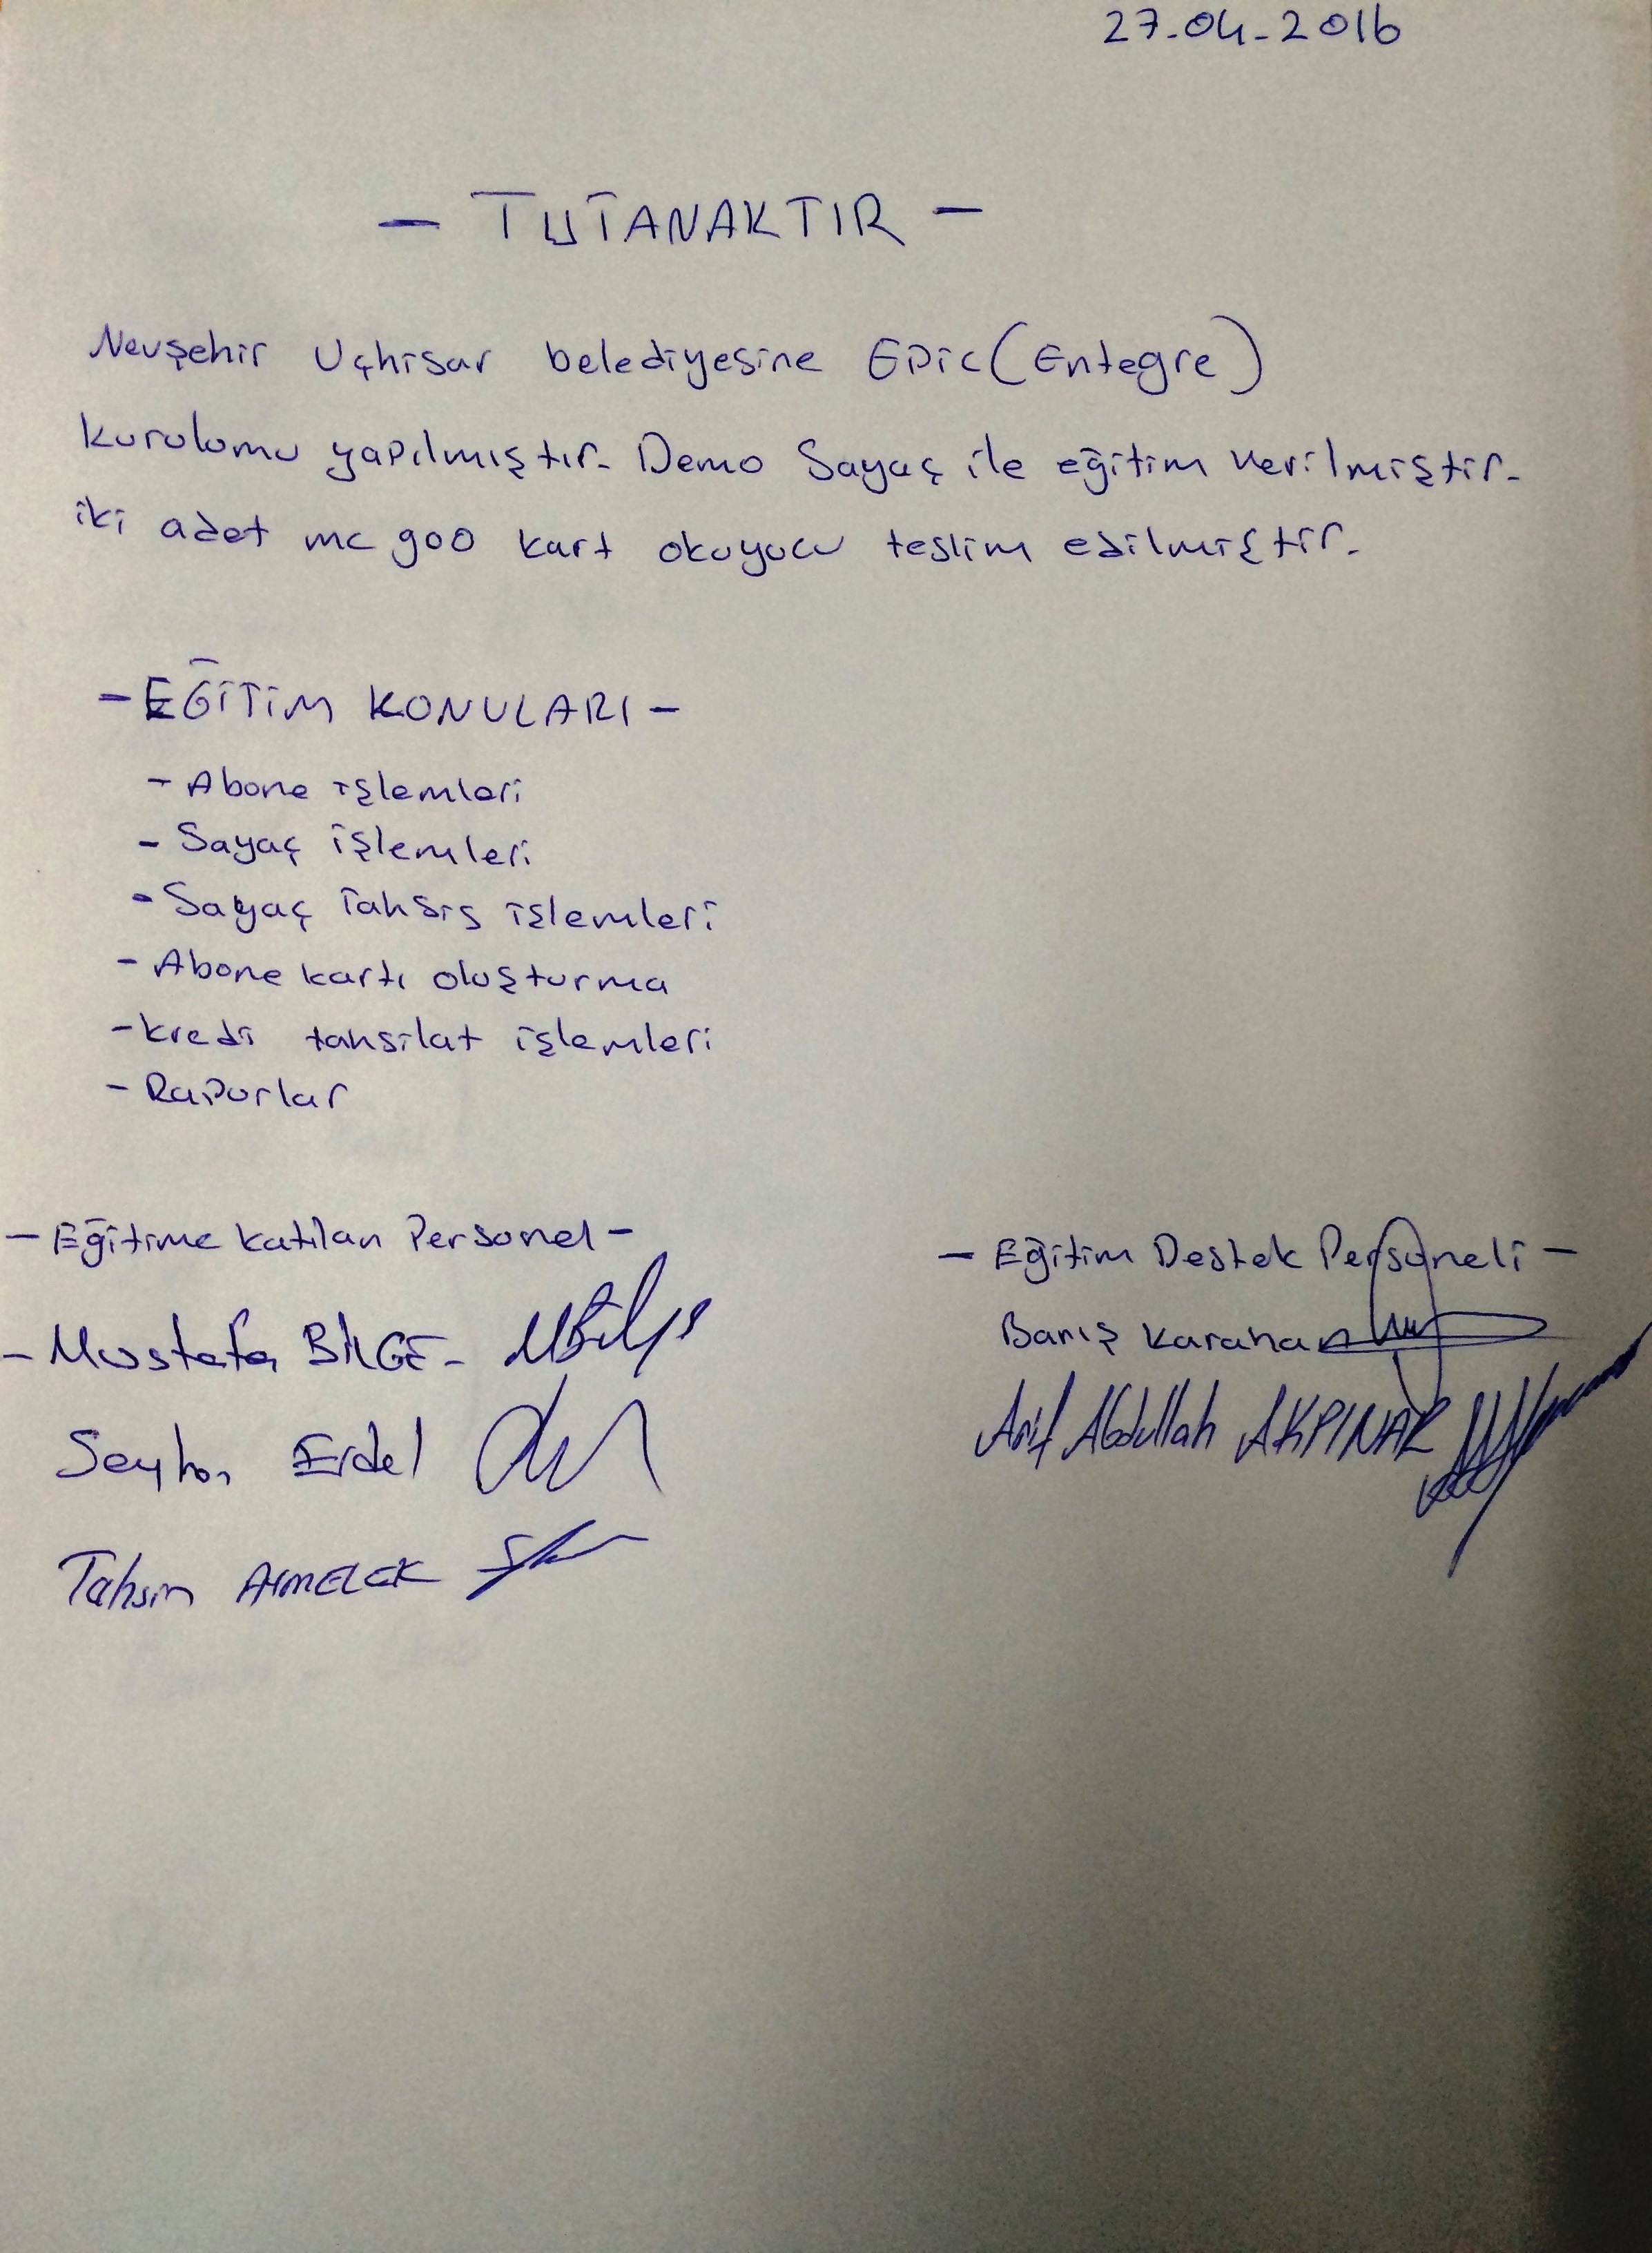 27.04.2016
- TUTANAKTIR -
Nevşehir Uçhisar belediyesine EPic (Entegre)
kurulumu yapılmıştır. Demo Sayaç ile eğitim verilmiştir.
iki adet mc 900 kart okuyucu teslim edilmiştir.
- EĞİTİM KONULARI -
- Abone işlemleri
- Sayaç işlemleri
- Sayaç Tahsis işlemleri
- Abone kartı oluşturma
- kredi tahsilat işlemleri
- Raporlar
- Eğitime katılan Personel -
- Mustafa BİLGE -
Seyhan Erdel
Tahsin
- Eğitim Destek Personeli -
Barış Karahan
Arif Abdullah AKPINAR